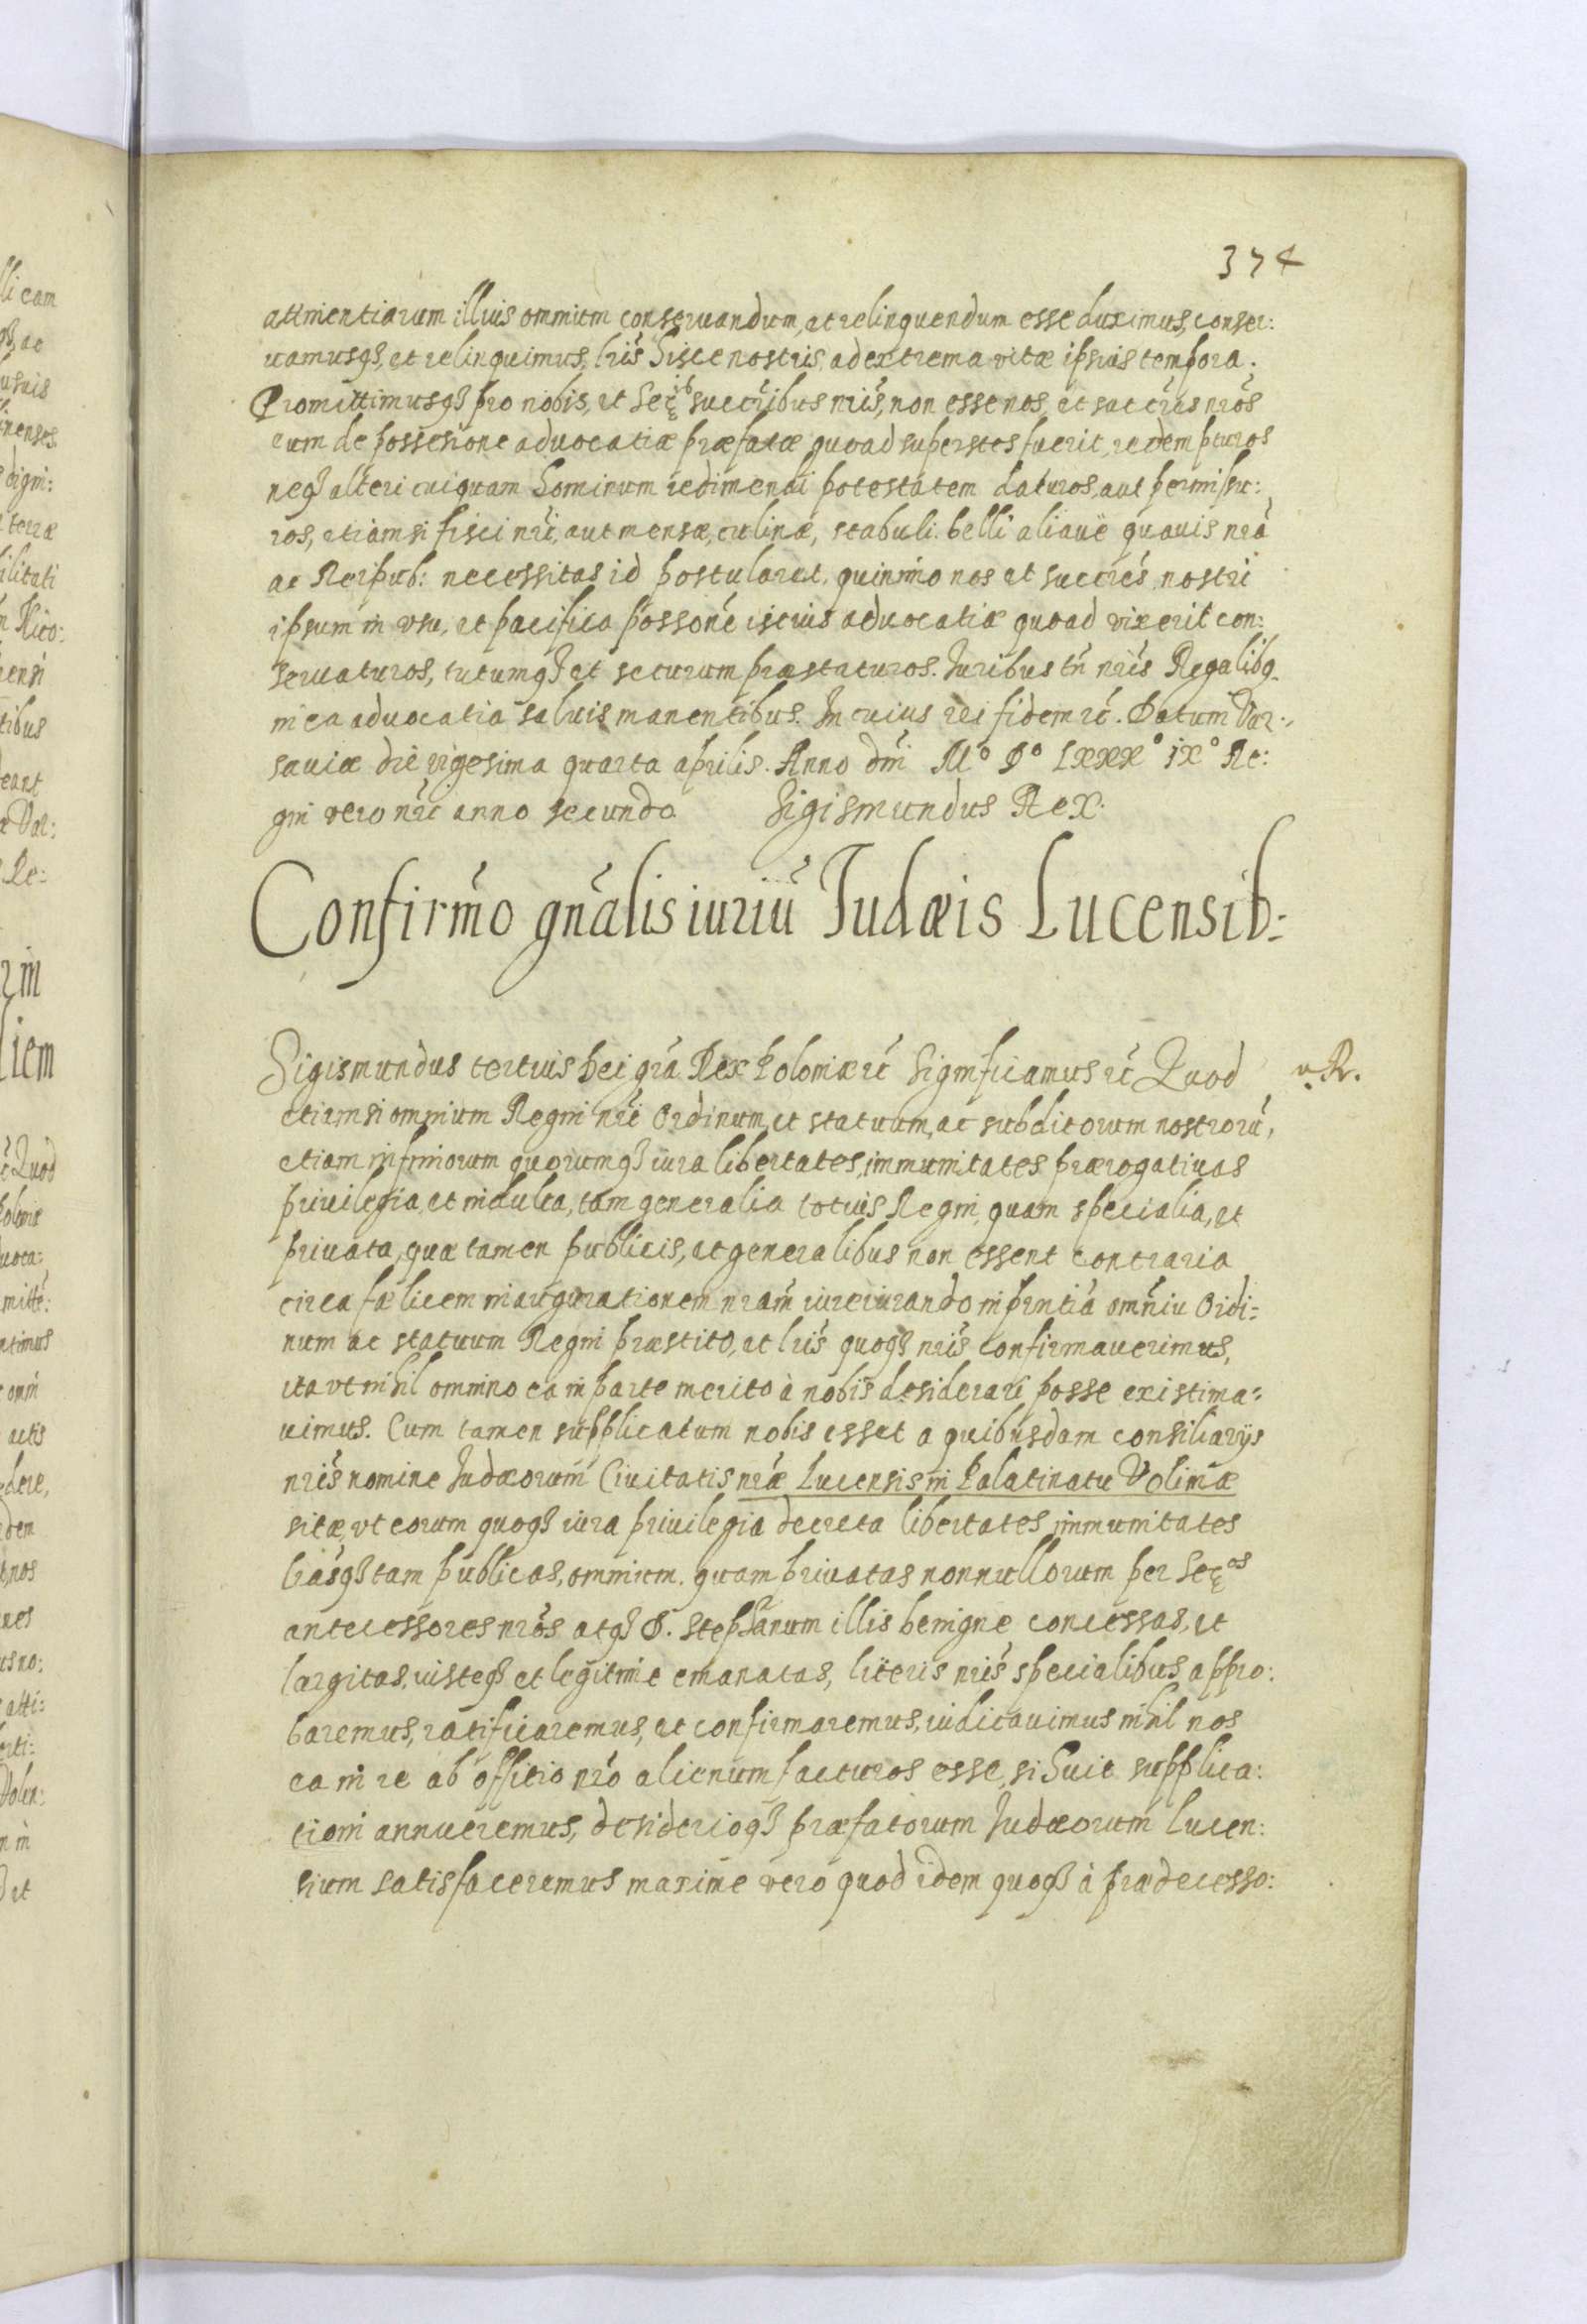 374
attinentiarum illius omnium conseruandum, et relinquendum esse duximus, conser:
uamusq3, et relinquimus, lris hisce nostris, ad extrema vitæ ipsius tempora.
Promittimusq3 pro nobis, et Sec^ib succribus nris, non esse nos, et succres nros
eum de possesione aduocatiæ præfatæ quoad superstes fuerit, redempturos
neq3 alteri cuiquam hominum redimendi potestatem daturos, aut permissu:
ros, etiamsi fisci nri, aut mensæ, culinæ, stabuli belli aliaue quauis nra
ac Reipub: necessitas id postularet, quinimo nos et succres nostri
ipsum in vsu, et pacifica possone istius aduocatiæ quoad vixerit con:
seruaturos, tutumq3 et securum præstaturos. Iuribus tn nris Regalibq
in ea aduocatia saluis manentibus. In cuius rei fidem rc. Datum Var:
sauiæ die vigesima quarta aprilis. Anno dni M° D° Lxxx° ix° Re:
gni vero nri anno secundo Sigismundus Rex.
Confirmo gnalis iuriu Iudæis Lucensib:
Sigismundus tertius Dei gra Rex Poloniæ rc Significamus rc Quod
etiamsi omnium Regni nri Ordinum, et statuum, ac subditorum nostroru,
etiam infimorum quorumq3 iura libertates, immunitates prærogatiuas
priuilegia, et indulta, tam generalia totius Regni, quam specialia, et
priuata, quæ tamen publicis, et generalibus non essent contraria
circa fælicem inaugurationem nram iureiurando in prntia omniu Ordi:
num ac statuum Regni præstito, et lris quoq3 nris confirmauerimus,
ita vt nihil omnino ea in parte merito à nobis desiderari posse existima:
uimus. Cum tamen supplicatum nobis esset a quibusdam consiliarijs
nris nomine Iudæorum Ciuitatis nræ Lucensis in Palatinatu Voliniæ
sitæ, vt eorum quoq3 iura priuilegia decreta libertates immunitates
lrasq3 tam publicas, omnium, quam priuatas nonnullorum per Sec^os
antecessores nros atq3 D. Stephanum illis benigne concessas, et
largitas, iusteq3 et legitime emanatas, literis nris specialibus appro:
baremus, ratificaremus, et confirmaremus, iudicauimus nihil nos
ea in re ab officio nro alienum facturos esse, si huic supplica:
tioni annueremus, desiderioq3 præfatorum Iudæorum Lucen:
sium satisfaceremus maxime vero quod idem quoq3 à prædecesso: